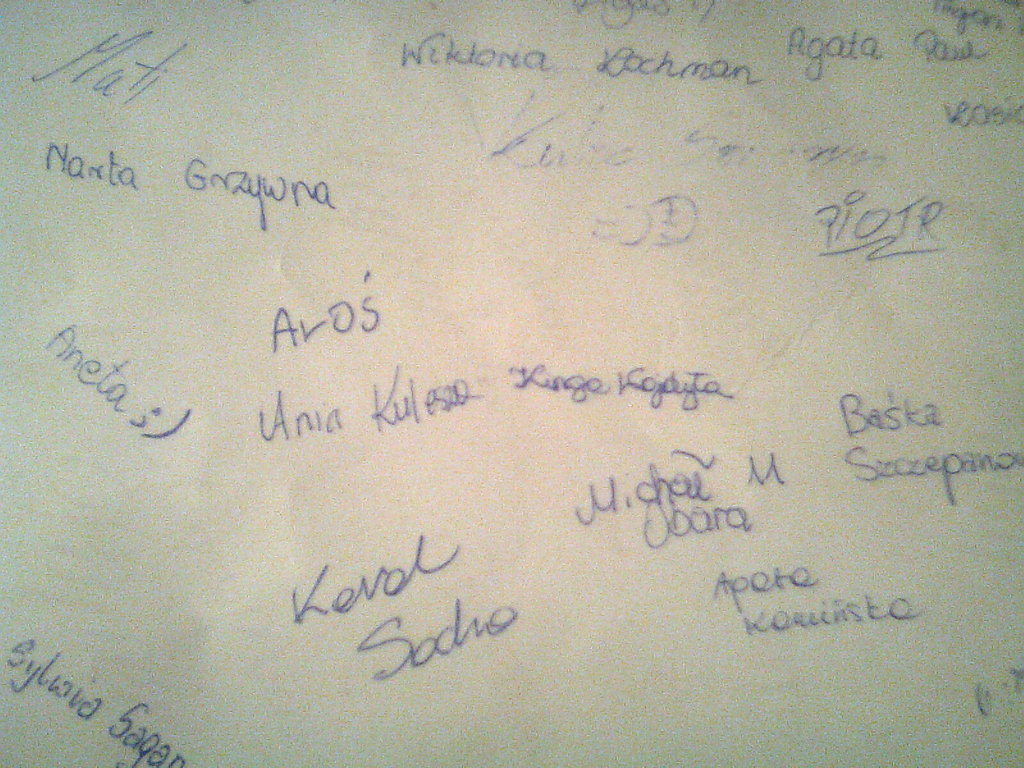 Mati
Wiktoria Kochman
Agata Paul
Kasia
Marta Grzywna
Kuba
=)
PIOTR
ALOŚ
Aneta ;)
Ania Kulesza
Kinga Kajdyła
Baśka
Szczepano
Michał M
Obara
Karol
Socha
Agata
Kamińska
Sylwia Sagan